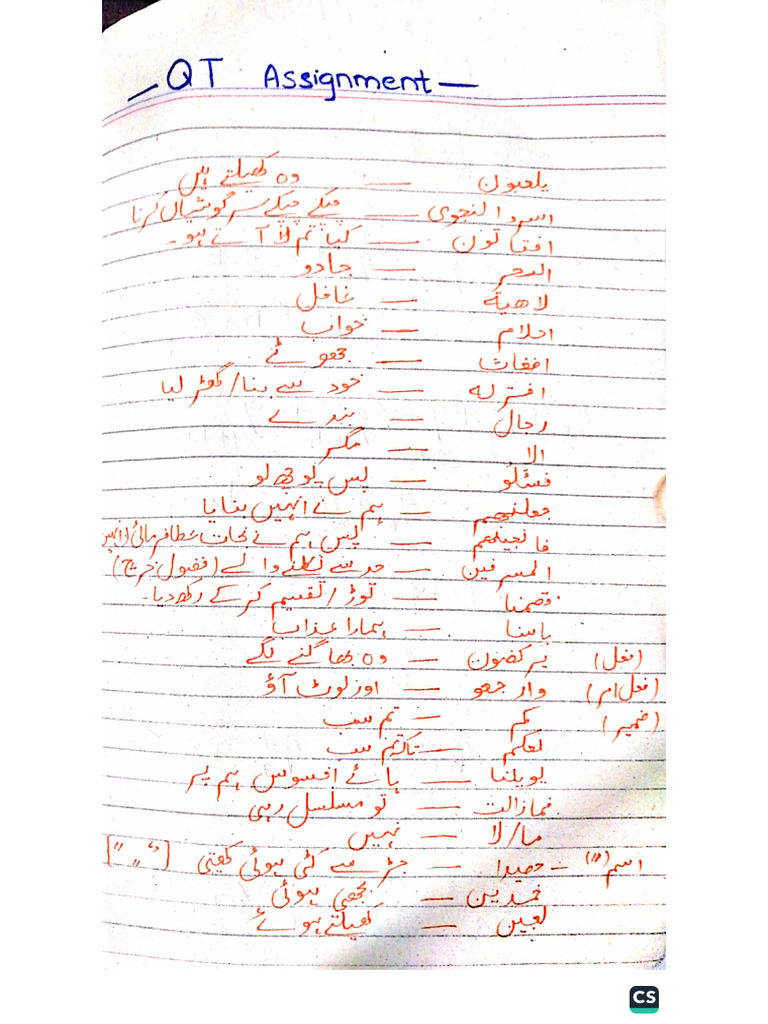 QT Assignment
یلعبون — وہ کھیلتے ہیں
اسروا النجوی — چپکے چپکے سرگوشیاں کرنا
افتاتون — کیا تم لا آتے ہو۔
السحر — جادو
لاھیۃ — غافل
احلام — خواب
اضغاث — جھوٹے
افترٰہ — خود سے بنا/گھڑ لیا
رجال — بندے
الا — مگر
فسئلو — پس پوچھ لو
جعلنھم — ہم نے انہیں بنایا
فانجینھم — پس ہم نے نجات عطا فرمائی (انہیں
المسرفین — حد سے نکلنے والے (فضول خرچ)
قصمنا — توڑ/تقسیم کر کے رکھ دیا۔
باسنا — ہمارا عذاب
(فعل) یرکضون — وہ بھاگنے لگے
(فعل امر) وارجعو — اور لوٹ آؤ
(ضمیر) کم — تم سب
لعلکم — تاکہ تم سب
یویلنا — ہائے افسوس ہم پر
فمازالت — تو مسلسل رہی
ما/لا — نہیں
اسم (ً) – حصیدا — جڑ سے کٹی ہوئی کھیتی [ٌ ٍ ً]
خمدین — بجھی ہوئی
لعبین — کھیلتے ہوئے
CS